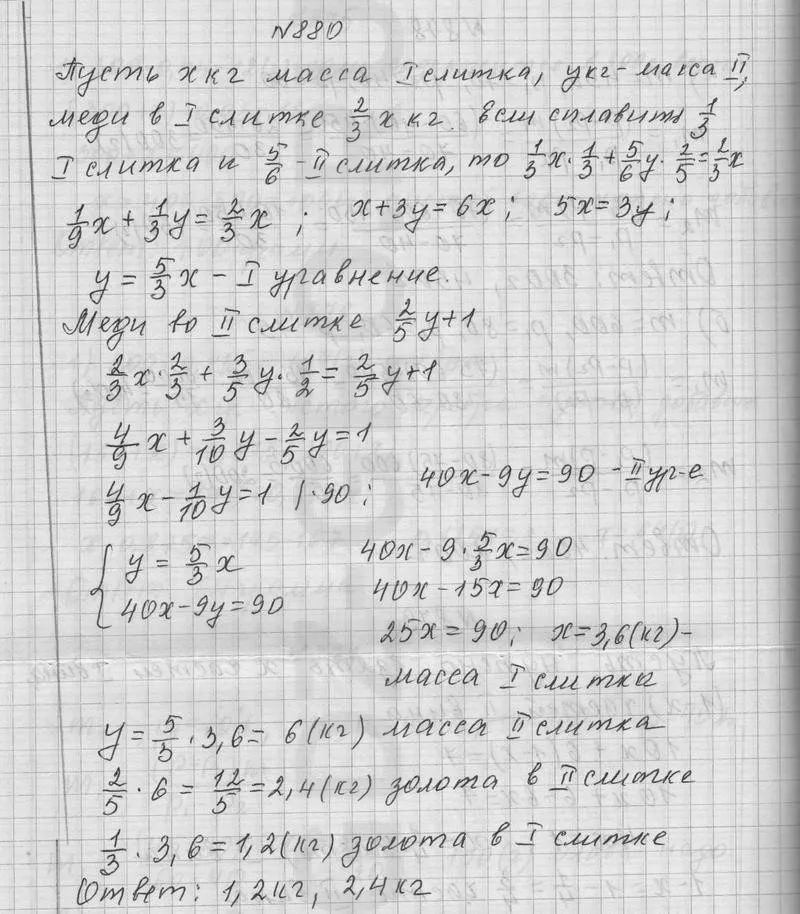 N880
Пусть x кг масса I слитка, y кг - масса II,
меди в I слитке 2/3 x кг. Если сплавить 1/3
I слитка и 5/6 - II слитка, то 1/3 x · 1/3 + 5/6 y · 2/5 = 2/3 x
1/9 x + 1/3 y = 2/3 x ; x + 3y = 6x ; 5x = 3y ;
y = 5/3 x - I уравнение.
Меди во II слитке 2/5 y + 1
2/3 x · 2/3 + 3/5 y · 1/2 = 2/5 y + 1
4/9 x + 3/10 y - 2/5 y = 1
4/9 x - 1/10 y = 1 | · 90 ; 40x - 9y = 90 - II ур-е
{ y = 5/3 x 40x - 9 · 5/3 x = 90
40x - 9y = 90 40x - 15x = 90
25x = 90 ; x = 3,6 (кг) -
масса I слитка
y = 5/3 · 3,6 = 6 (кг) масса II слитка
2/5 · 6 = 12/5 = 2,4 (кг) золота в II слитке
1/3 · 3,6 = 1,2 (кг) золота в I слитке
Ответ: 1,2 кг, 2,4 кг